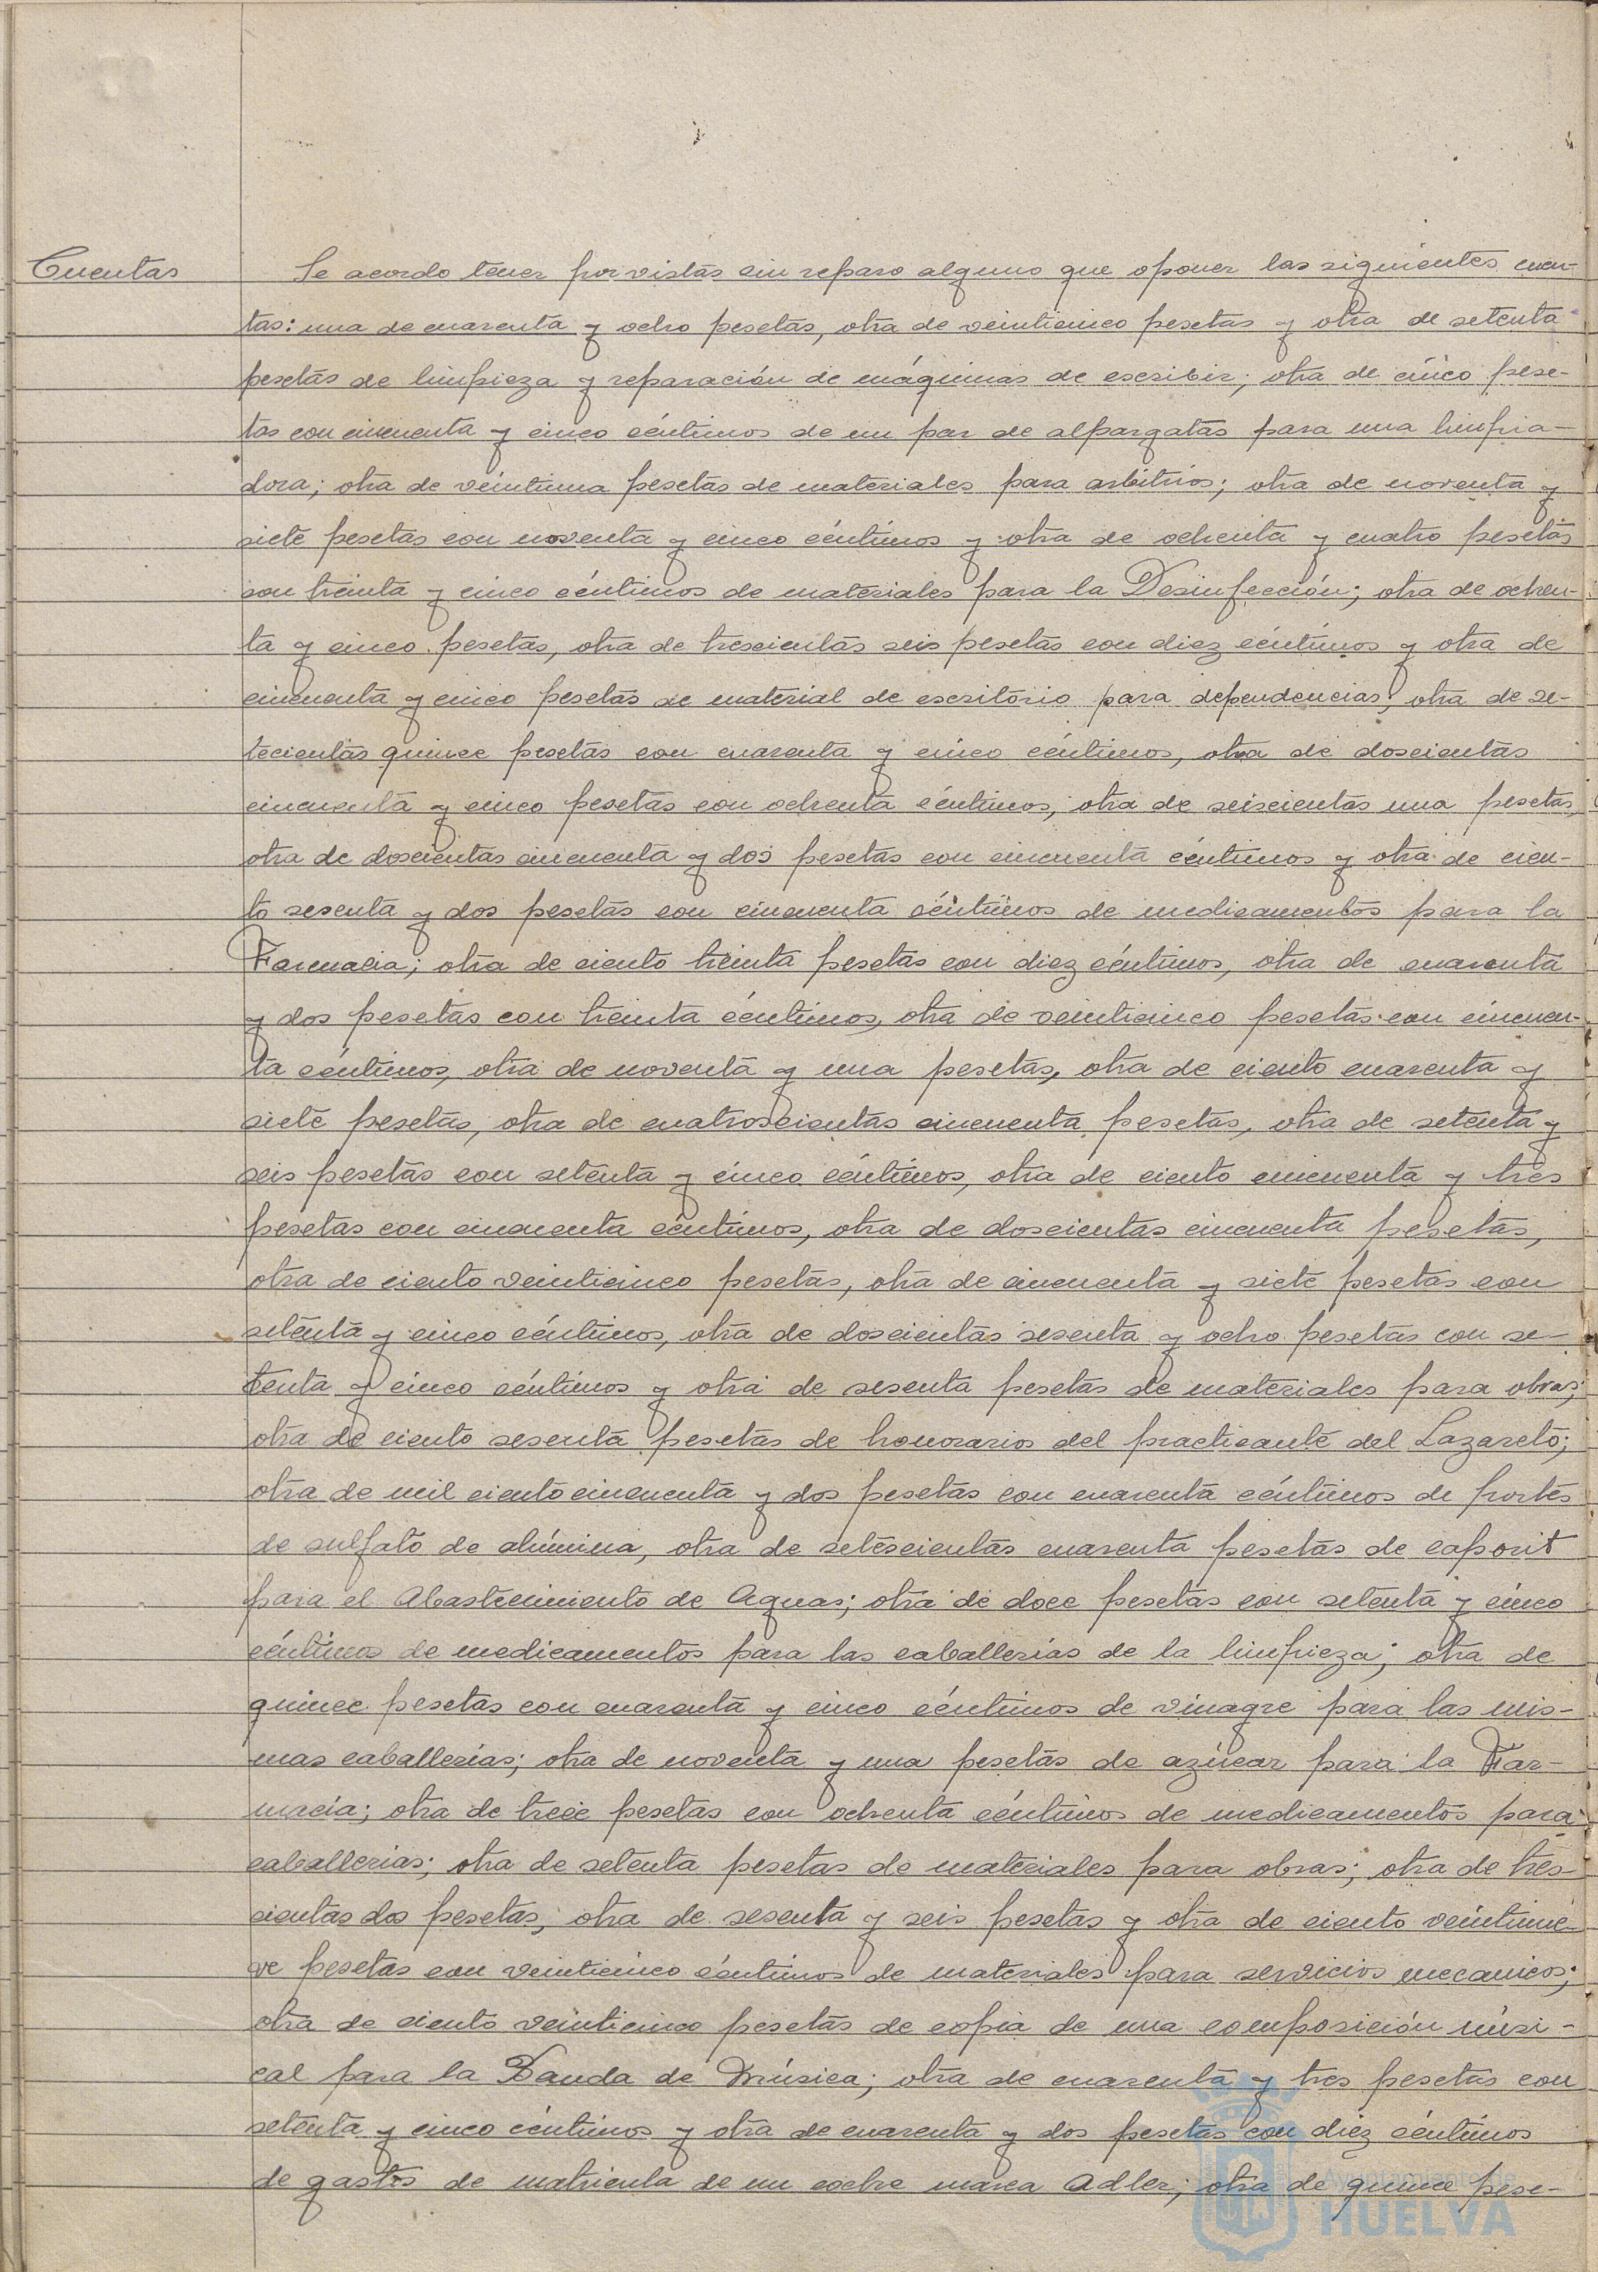 Cuentas
Se acordo tener por vistas sin reparo alguno que oponer las siguientes cuen-
tas: una de cuarenta y ocho pesetas, otra de veinticinco pesetas y otra de setenta
pesetas de limpieza y reparación de máquinas de escribir; otra de cinco pese-
tas con cincuenta y cinco céntimos de un par de alpargatas para una limpia-
dora; otra de veintiuna pesetas de materiales para arbitrios; otra de noventa y
siete pesetas con noventa y cinco céntimos y otra de ochenta y cuatro pesetas
con treinta y cinco céntimos de materiales para la Desinfección; otra de ochen-
ta y cinco pesetas, otra de trescientas seis pesetas con diez céntimos y otra de
cincuenta y cinco pesetas de material de escritorio para dependencias; otra de se-
tecientas quince pesetas con cuarenta y cinco céntimos, otra de doscientas
cincuenta y cinco pesetas con ochenta céntimos, otra de seiscientas una pesetas,
otra de doscientas cincuenta y dos pesetas con cincuenta céntimos y otra de cien-
to sesenta y dos pesetas con cincuenta céntimos de medicamentos para la
Farmacia; otra de ciento treinta pesetas con diez céntimos, otra de cuarenta
y dos pesetas con treinta céntimos, otra de veinticinco pesetas con cincuen-
ta céntimos, otra de noventa y una pesetas, otra de ciento cuarenta y
siete pesetas, otra de cuatroscientas cincuenta pesetas, otra de setenta y
seis pesetas con setenta y cinco céntimos, otra de ciento cincuenta y tres
pesetas con cincuenta céntimos, otra de doscientas cincuenta pesetas,
otra de ciento veinticinco pesetas, otra de cincuenta y siete pesetas con
setenta y cinco céntimos, otra de doscientas sesenta y ocho pesetas con se-
tenta y cinco céntimos y otra de sesenta pesetas de materiales para obras;
otra de ciento sesenta pesetas de honorarios del practicante del Lazareto;
otra de mil ciento cincuenta y dos pesetas con cuarenta céntimos de portes
de sulfato de alúmina, otra de setescientas cuarenta pesetas de caporit
para el Abastecimiento de Aguas; otra de doce pesetas con setenta y cinco
céntimos de medicamentos para las caballerías de la limpieza; otra de
quince pesetas con cuarenta y cinco céntimos de vinagre para las mis-
mas caballerías; otra de noventa y una pesetas de azúcar para la Far-
macia; otra de trece pesetas con ochenta céntimos de medicamentos para
caballerías; otra de setenta pesetas de materiales para obras; otra de tres-
cientas dos pesetas, otra de sesenta y seis pesetas y otra de ciento veintinue-
ve pesetas con veinticinco céntimos de materiales para servicios mecanicos;
otra de ciento veinticinco pesetas de copia de una composición músi-
cal para la Banda de Música; otra de cuarenta y tres pesetas con
setenta y cinco céntimos y otra de cuarenta y dos pesetas con diez céntimos
de gastos de matricula de un coche marca Adler; otra de quince pese-
Ayuntamiento de
HUELVA